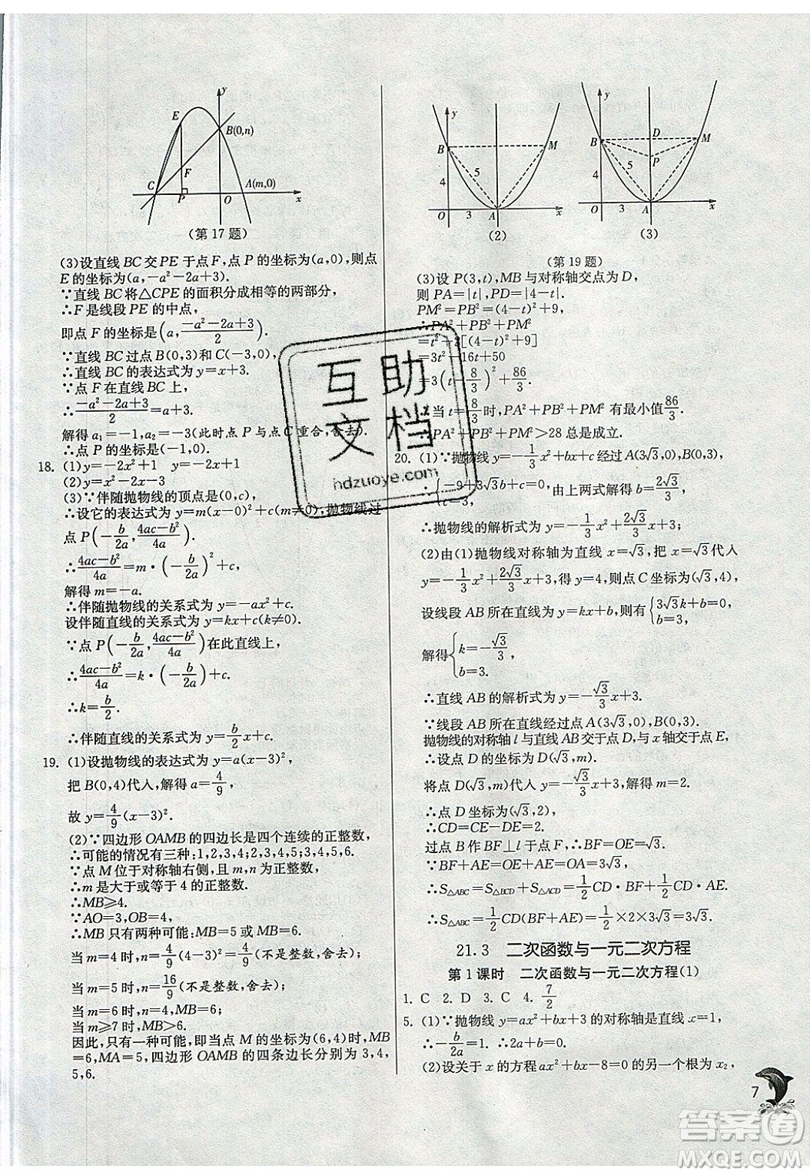 y
E
B(0,n)
F
C
P
O
A(m,0)
x
(第17题)
(3)设直线BC交PE于点F,点P的坐标为(a,0),则点
E的坐标为(a,-a²-2a+3).
∵直线BC将△CPE的面积分成相等的两部分,
∴F是线段PE的中点,
即点F的坐标是(a, (-a²-2a+3)/2).
∵直线BC过点B(0,3)和C(-3,0),
∴直线BC的表达式为y=x+3.
∵点F在直线BC上,
∴(-a²-2a+3)/2=a+3.
解得a₁=-1,a₂=-3(此时点P与点C重合,舍去).
∴点P的坐标是(-1,0).
18. (1)y=-2x²+1 y=-2x+1
(2)y=x²-2x-3
(3)∵伴随抛物线的顶点是(0,c),
∴设它的表达式为y=m(x-0)²+c(m≠0),抛物线过
点P(-b/2a, (4ac-b²)/4a).
∴(4ac-b²)/4a=m·(-b/2a)²+c,
解得m=-a.
∴伴随抛物线的关系式为y=-ax²+c.
设伴随直线的关系式为y=kx+c(k≠0).
∵点P(-b/2a, (4ac-b²)/4a)在此直线上,
∴(4ac-b²)/4a=k·(-b/2a)+c.
∴k=b/2.
∴伴随直线的关系式为y=b/2 x+c.
19. (1)设抛物线的表达式为y=a(x-3)²,
把B(0,4)代入,解得a=4/9,
故y=4/9(x-3)².
(2)∵四边形OAMB的四边长是四个连续的正整数,
∴可能的情况有三种:1,2,3,4;2,3,4,5;3,4,5,6.
∵点M位于对称轴右侧,且m,n为正整数,
∴m是大于或等于4的正整数.
∴MB≥4.
∵AO=3,OB=4,
∴MB只有两种可能:MB=5或MB=6.
当m=4时,n=4/9(4-3)²=4/9(不是整数,舍去);
当m=5时,n=16/9(不是整数,舍去);
当m=6时,n=4,MB=6;
当m≥7时,MB>6.
因此,只有一种可能,即当点M的坐标为(6,4)时,MB
=6,MA=5,四边形OAMB的四条边长分别为3,4,
5,6.
y
B
M
4
5
O
3
A
x
(2)
y
D
B
M
P
4
5
O
3
A
x
(3)
(第19题)
(3)设P(3,t),MB与对称轴交点为D,
则PA=|t|,PD=|4-t|.
PM²=PB²=(4-t)²+9,
∴PA²+PB²+PM²
=t²+2[(4-t)²+9]
=3t²-16t+50
=3(t-8/3)²+86/3.
∴当t=8/3时,PA²+PB²+PM²有最小值86/3.
∴PA²+PB²+PM²>28总是成立.
20. (1)∵抛物线y=-1/3x²+bx+c经过A,B两点,
∴{-9+3√3b+c=0, 由上两式解得b=2√3/3,
∴抛物线的解析式为y=-1/3x²+2√3/3x+3.
(2)由(1)抛物线对称轴为直线x=√3,把x=√3代入
y=-1/3x²+2√3/3x+3,得y=4,则点C坐标为(√3,4),
设线段AB所在直线为y=kx+b,则有{3√3k+b=0,
b=3,
解得{k=-√3/3,
b=3.
∴直线AB的解析式为y=-√3/3x+3.
∵线段AB所在直线经过点A(3√3,0),B(0,3),
抛物线的对称轴l与直线AB交于点D,与x轴交于点E,
∴设点D的坐标为D(√3,m).
将点D(√3,m)代入y=-√3/3x+3,解得m=2.
∴点D坐标为(√3,2),
∴CD=CE-DE=2.
过点B作BF⊥l于点F,∴BF=OE=√3.
∵BF+AE=OE+AE=OA=3√3,
∴S△ABC=S△BCD+S△ACD=1/2CD·BF+1/2CD·AE,
∴S△ABC=1/2CD(BF+AE)=1/2×2×3√3=3√3.
21.3 二次函数与一元二次方程
第1课时 二次函数与一元二次方程(1)
1. C 2. D 3. C 4. 7/2
5. (1)∵抛物线y=ax²+bx+3的对称轴是直线x=1,
∴-b/2a=1. ∴2a+b=0.
(2)设关于x的方程ax²+bx-8=0的另一个根为x₂,
7
互助
文档
hdzuoye.com
答案圈
MXQE.COM